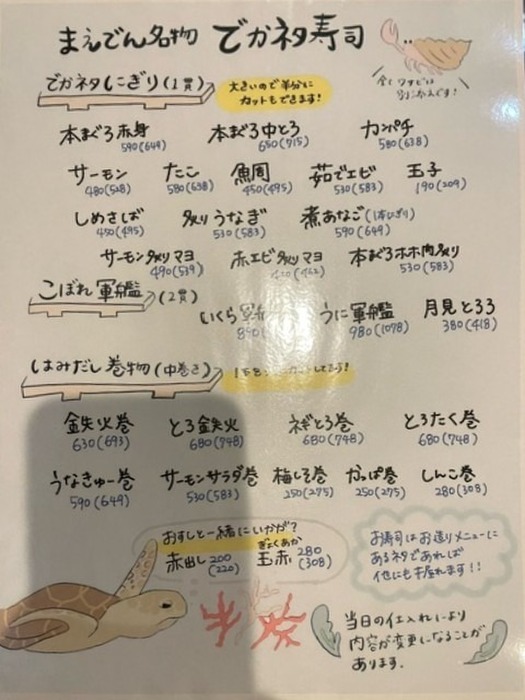 まえでん名物 でかネタ寿司
全て ワサビは
別添えです!
でかネタにぎり(1貫)
大きいので半分に
カットもできます!
本まぐろ赤身 本まぐろ中とろ カンパチ
590(649) 650(715) 580(638)
サーモン たこ 魚周 茹でエビ 玉子
480(528) 580(638) 450(495) 530(583) 190(209)
しめさば 炙りうなぎ 煮あなご(1本にぎり)
450(495) 530(583) 590(649)
サーモン炙りマヨ 赤エビ炙りマヨ 本まぐろホホ肉炙り
490(539) 420(462) 530(583)
こぼれ軍艦(2貫)
いくら軍艦 うに軍艦 月見とろろ
980(1078) 380(418)
はみだし巻物(中巻き)
鉄火巻 とろ鉄火 ネギとろ巻 とろたく巻
630(693) 680(748) 680(748) 680(748)
うなきゅー巻 サーモンサラダ巻 梅しそ巻 かっぱ巻 しんこ巻
590(649) 530(583) 250(275) 250(275) 280(308)
おすしと一緒にいかが?
ぎょくあか
赤出し 200 玉赤 280
(220) (308)
お寿司はお造りメニューに
あるネタであれば
他にも手握れます!!
当日の仕入れにより
内容が変更になることが
あります。